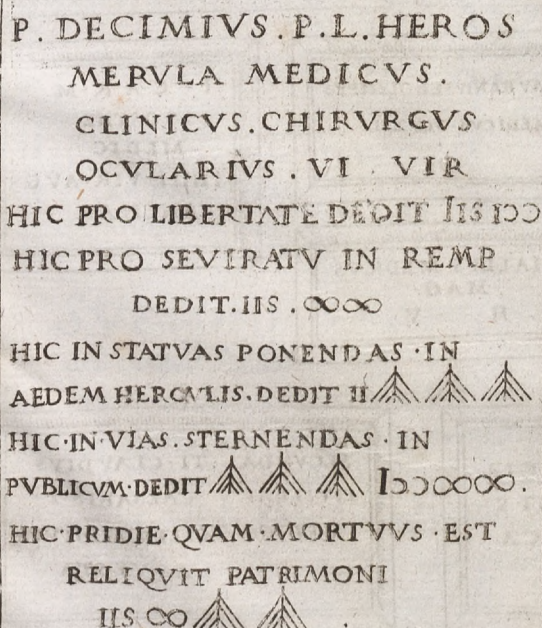 P. DECIMIVS. P. L. HEROS
MERVLA MEDICVS.
CLINICVS. CHIRVRGVS
OCVLARIVS. VI VIR
HIC PRO LIBERTATE DEDIT IIS IↃↃ
HIC PRO SEVIRATV IN REMP
DEDIT. IIS. ∞∞
HIC IN STATVAS PONENDAS · IN
AEDEM HERCVLIS. DEDIT II ↂↂↂ
HIC·IN·VIAS. STERNENDAS · IN
PVBLICVM·DEDIT ↂↂↂ IↃↃ∞∞.
HIC·PRIDIE·QVAM·MORTVVS·EST
RELIQVIT PATRIMONI
IIS ∞ ↂↂ.